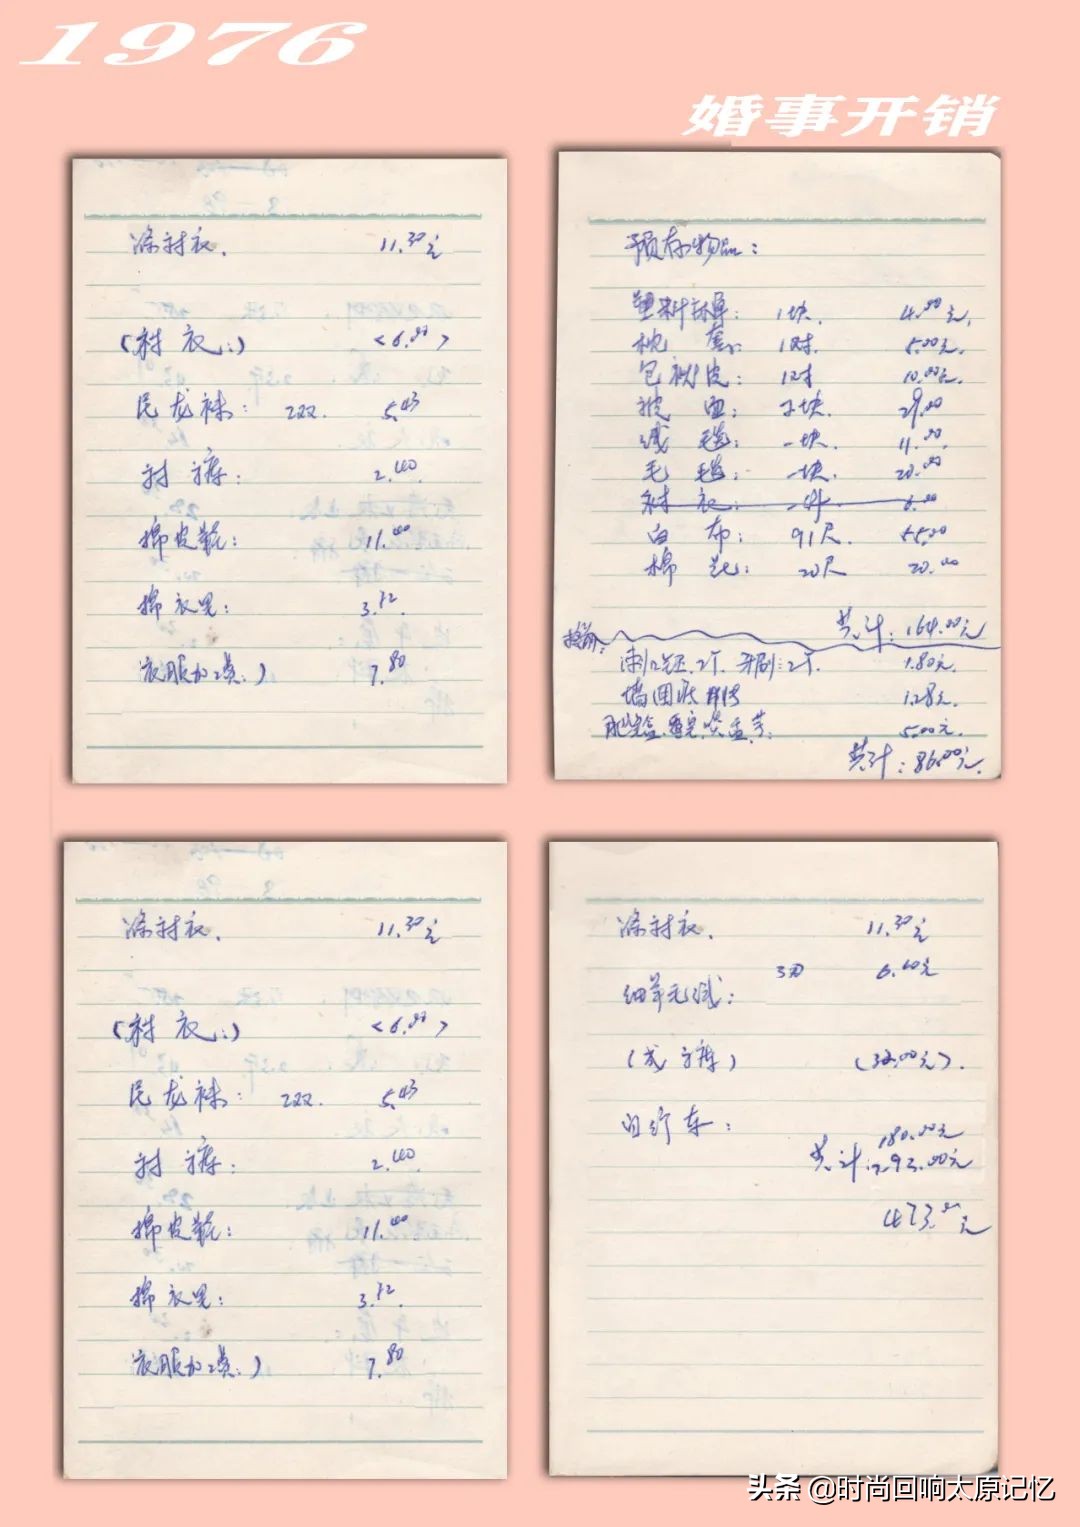 1976
婚事开销
涤衬衣. 11.30元
(衬衣:) <6.00>
尼龙袜: 2双. 5.43
衬裤: 2.40
棉皮鞋: 11.00
棉衣里: 3.12.
衣服加工费:) 7.80
预存物品:
塑料布单: 1块. 4.00元.
枕套: 1对. 5.00元.
包袱皮: 1对 10.00元.
被面: 2块. 29.00
线毯: 一块. 11.00
毛毯: 一块. 20.00
衬衣: 一件 6.00
白布: 91尺. 55.00
棉花: 20斤 20.00
共计: 164.00元
2个. 牙刷: 2个. 1.80元.
墙围 1.28元.
肥皂盒. 5.00元.
共计: 86.00元.
涤衬衣. 11.30元
(衬衣:) <6.00>
尼龙袜: 2双. 5.43
衬裤: 2.40
棉皮鞋: 11.00
棉衣里: 3.12.
衣服加工费:) 7.80
涤衬衣. 11.30元
细羊毛线: 6.60元
(成裤) (32.00元).
自行车: 180.00元
共计: 293.00元
473.00元
头条 @时尚回响太原记忆